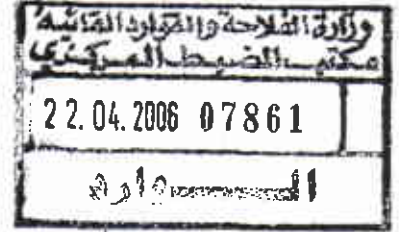 وزارة الفلاحة والموارد المائية
مكتب الضبط المركزي
22.04.2006 07861
الـــوارد